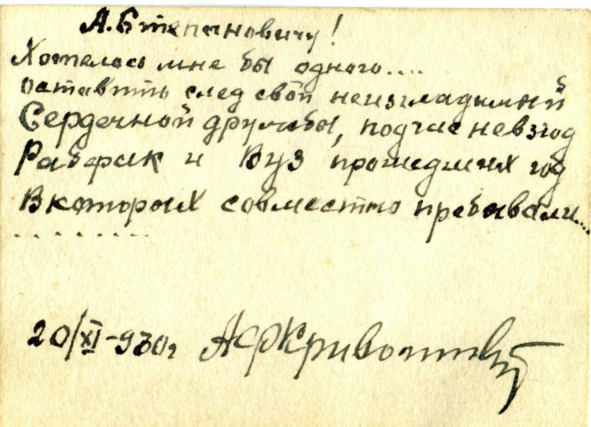 А. Степановичу!
Хотелось мне бы одного....
Оставить след свой неизгладимый
Сердечной дружбы, подчас невзгод
Рабфак и Вуз прошедших год
В которых совместно пребывали...
. . . . . . . . .
20/XI-930г